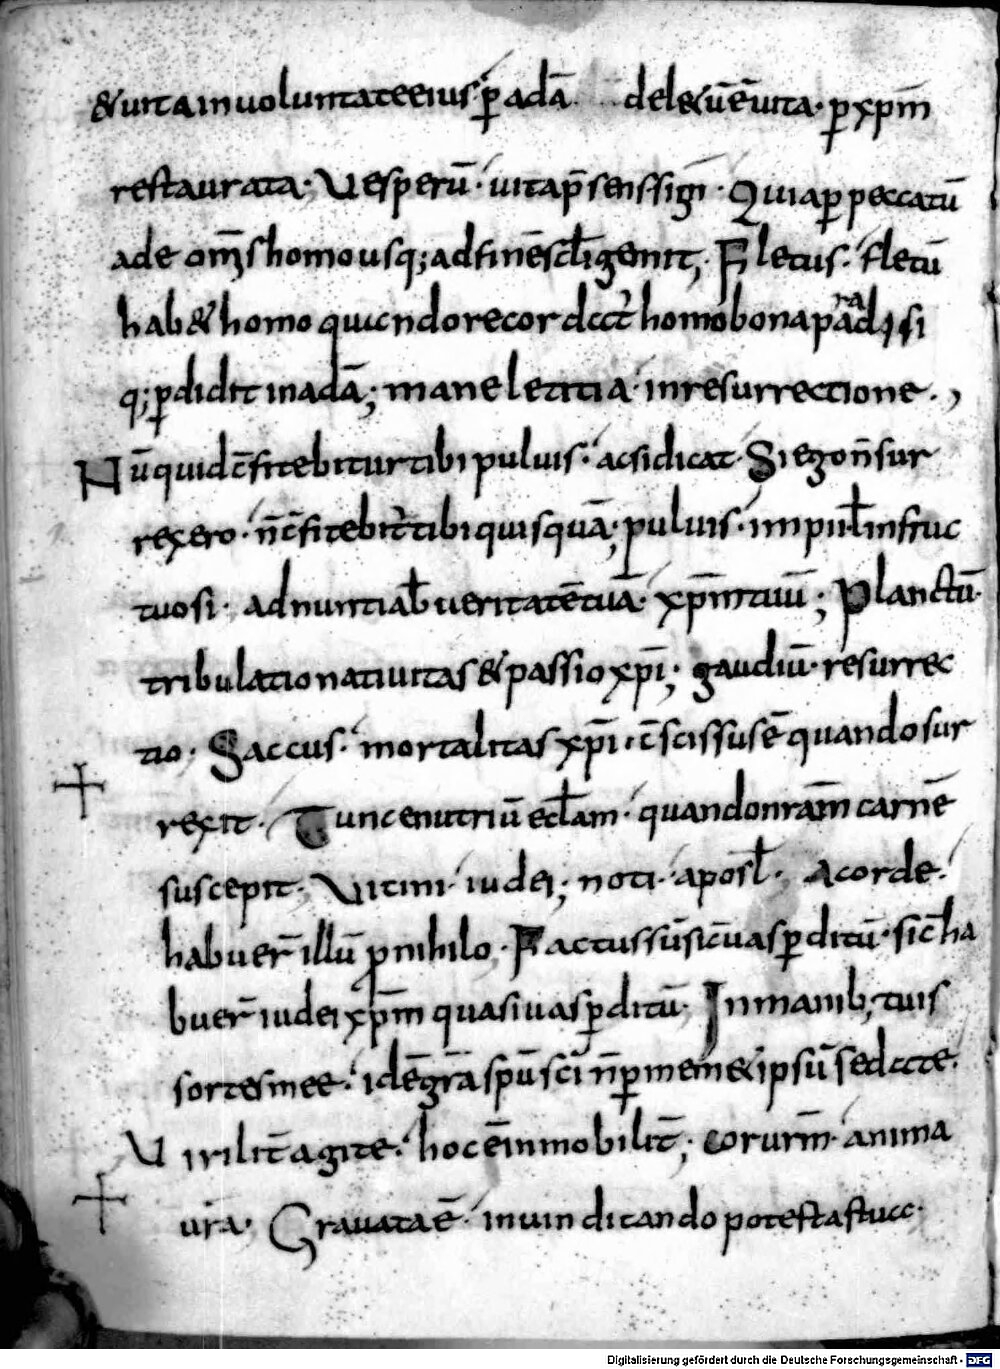 & uita in uoluntate eius· ꝑ adā delet̄ ūē uita· ꝑ xpm̄
restaurata· Uesperū· uita p̄sens sign̄· Quia ꝑ peccatū
ade om̄s homo usq; ad finē sc̄li gemit; Fletus· fletū
hab& homo quando recordat̄ homo bona paradisi
q; ꝑdidit in adā; mane letitia· in resurrectione·,
Nūquid c̄fitebitur tibi puluis· ac si dicat· Si ego n̄ sur
rexero· n̄ c̄fitebit̄ tibi quisquā; puluis· impii ł infruc
tuosi· adnuntiab̄ ueritatē tuā· xp̄m tuū; Planctū·
tribulatio natiuitas & passio xp̄i; gaudiū· resurrec
tio· Saccus· mortalitas xp̄i· c̄scissus ē quando sur
rexit· Tunc enutriū ecł am· quando nr̄am carnē
suscepit; Uicini· iudei; noti· aposł· A corde·
habuer̄ illū ꝓ nihilo· Factus sū sic̄ uas ꝑditū· sic̄ ha
buer̄ iudei xp̄m quasi uas ꝑditū; In manib; tuis
sortes mee· idē gr̄a sp̄u sc̄i n̄ ꝑ mem& ipsū sed a te·
Uirilit̄ agite· hoc ē inmobilit̄; cor ur̄m· anima
ur̄a· Grauata ē· in uindicando potestas tua·